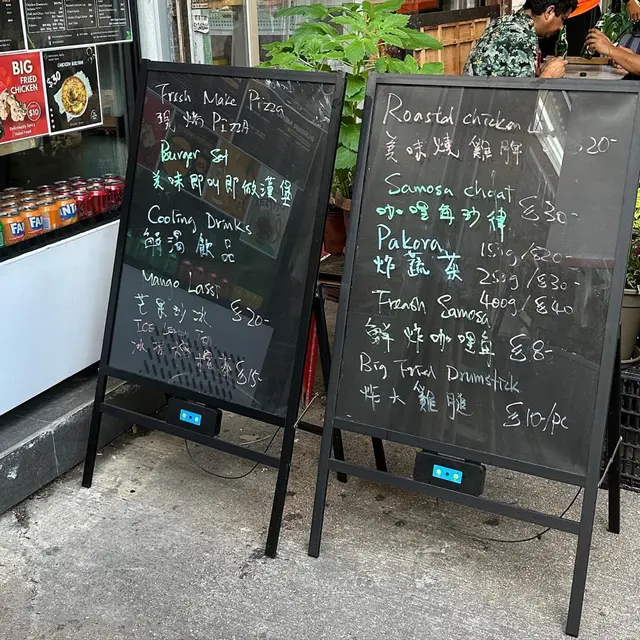 BIG
FRIED
CHICKEN
$10
$30
FANTA
Fresh Make Pizza
現烤 Pizza
Burger Set
美味即叫即做漢堡
Cooling Drinks
解渴飲品
Mango Lassi
芒果沙冰 $20-
ICE
$15-
Roasted chicken
美味燒雞髀 $20-
Samosa chaat
$30-
Pakora 150g/$20-
炸蔬菜 250g/$30-
400g/$40
Fresh Samosa
鮮炸咖喱角 $8-
Big Fried Drumstick
炸大雞腿 $10-/pc